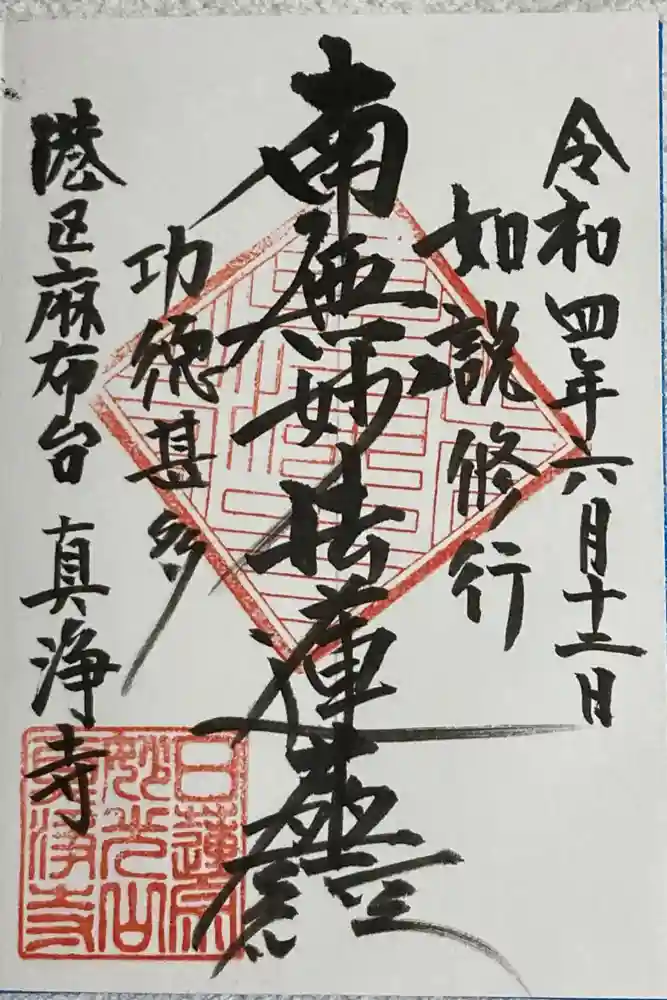 令和四年六月十二日
如説修行
南無妙法蓮華経
功徳甚多
港区麻布台 真浄寺
日蓮宗
妙光山
真浄寺